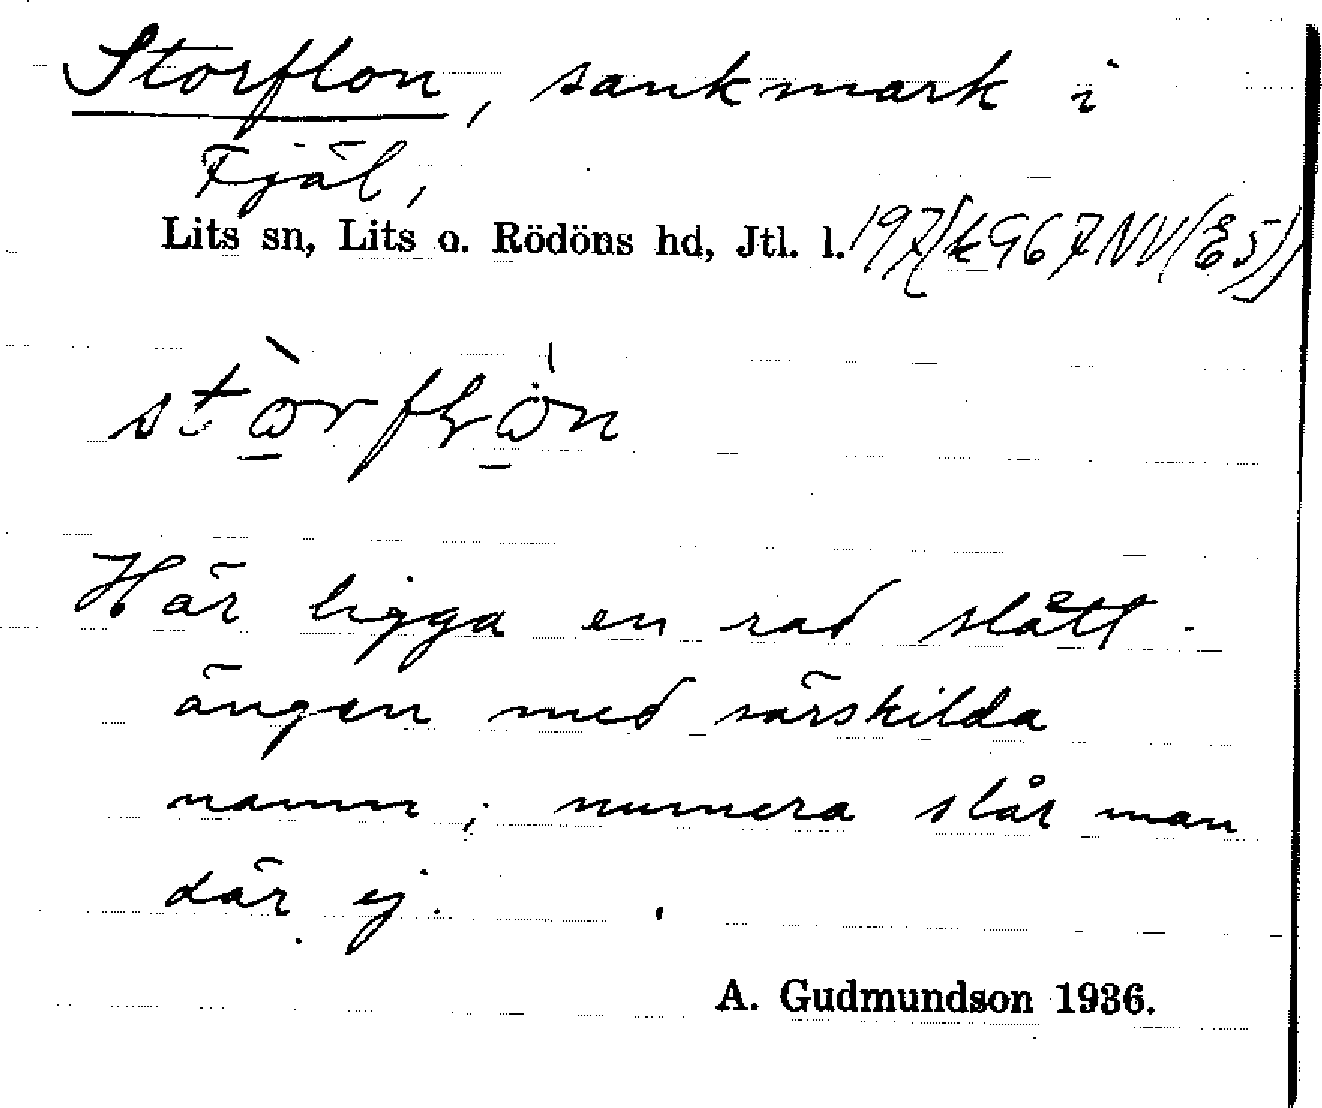 Storflon, sankmark i
Fjäl,
Lits sn, Lits o. Rödöns hd, Jtl. l.
Här ligga en rad slått-
ängen med särskilda
namn; numera slår man
där ej.
A. Gudmundson 1936.